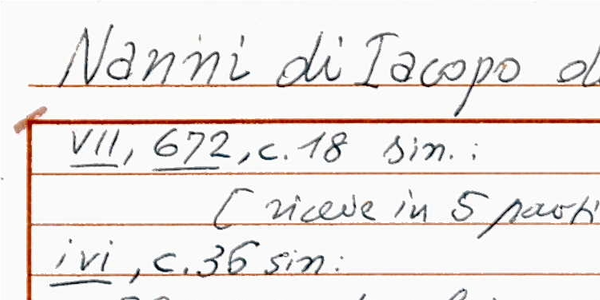 Nanni di Iacopo d
VII, 672, c. 18 sin.:
[ riceve in 5 parti
ivi, c. 36 sin: